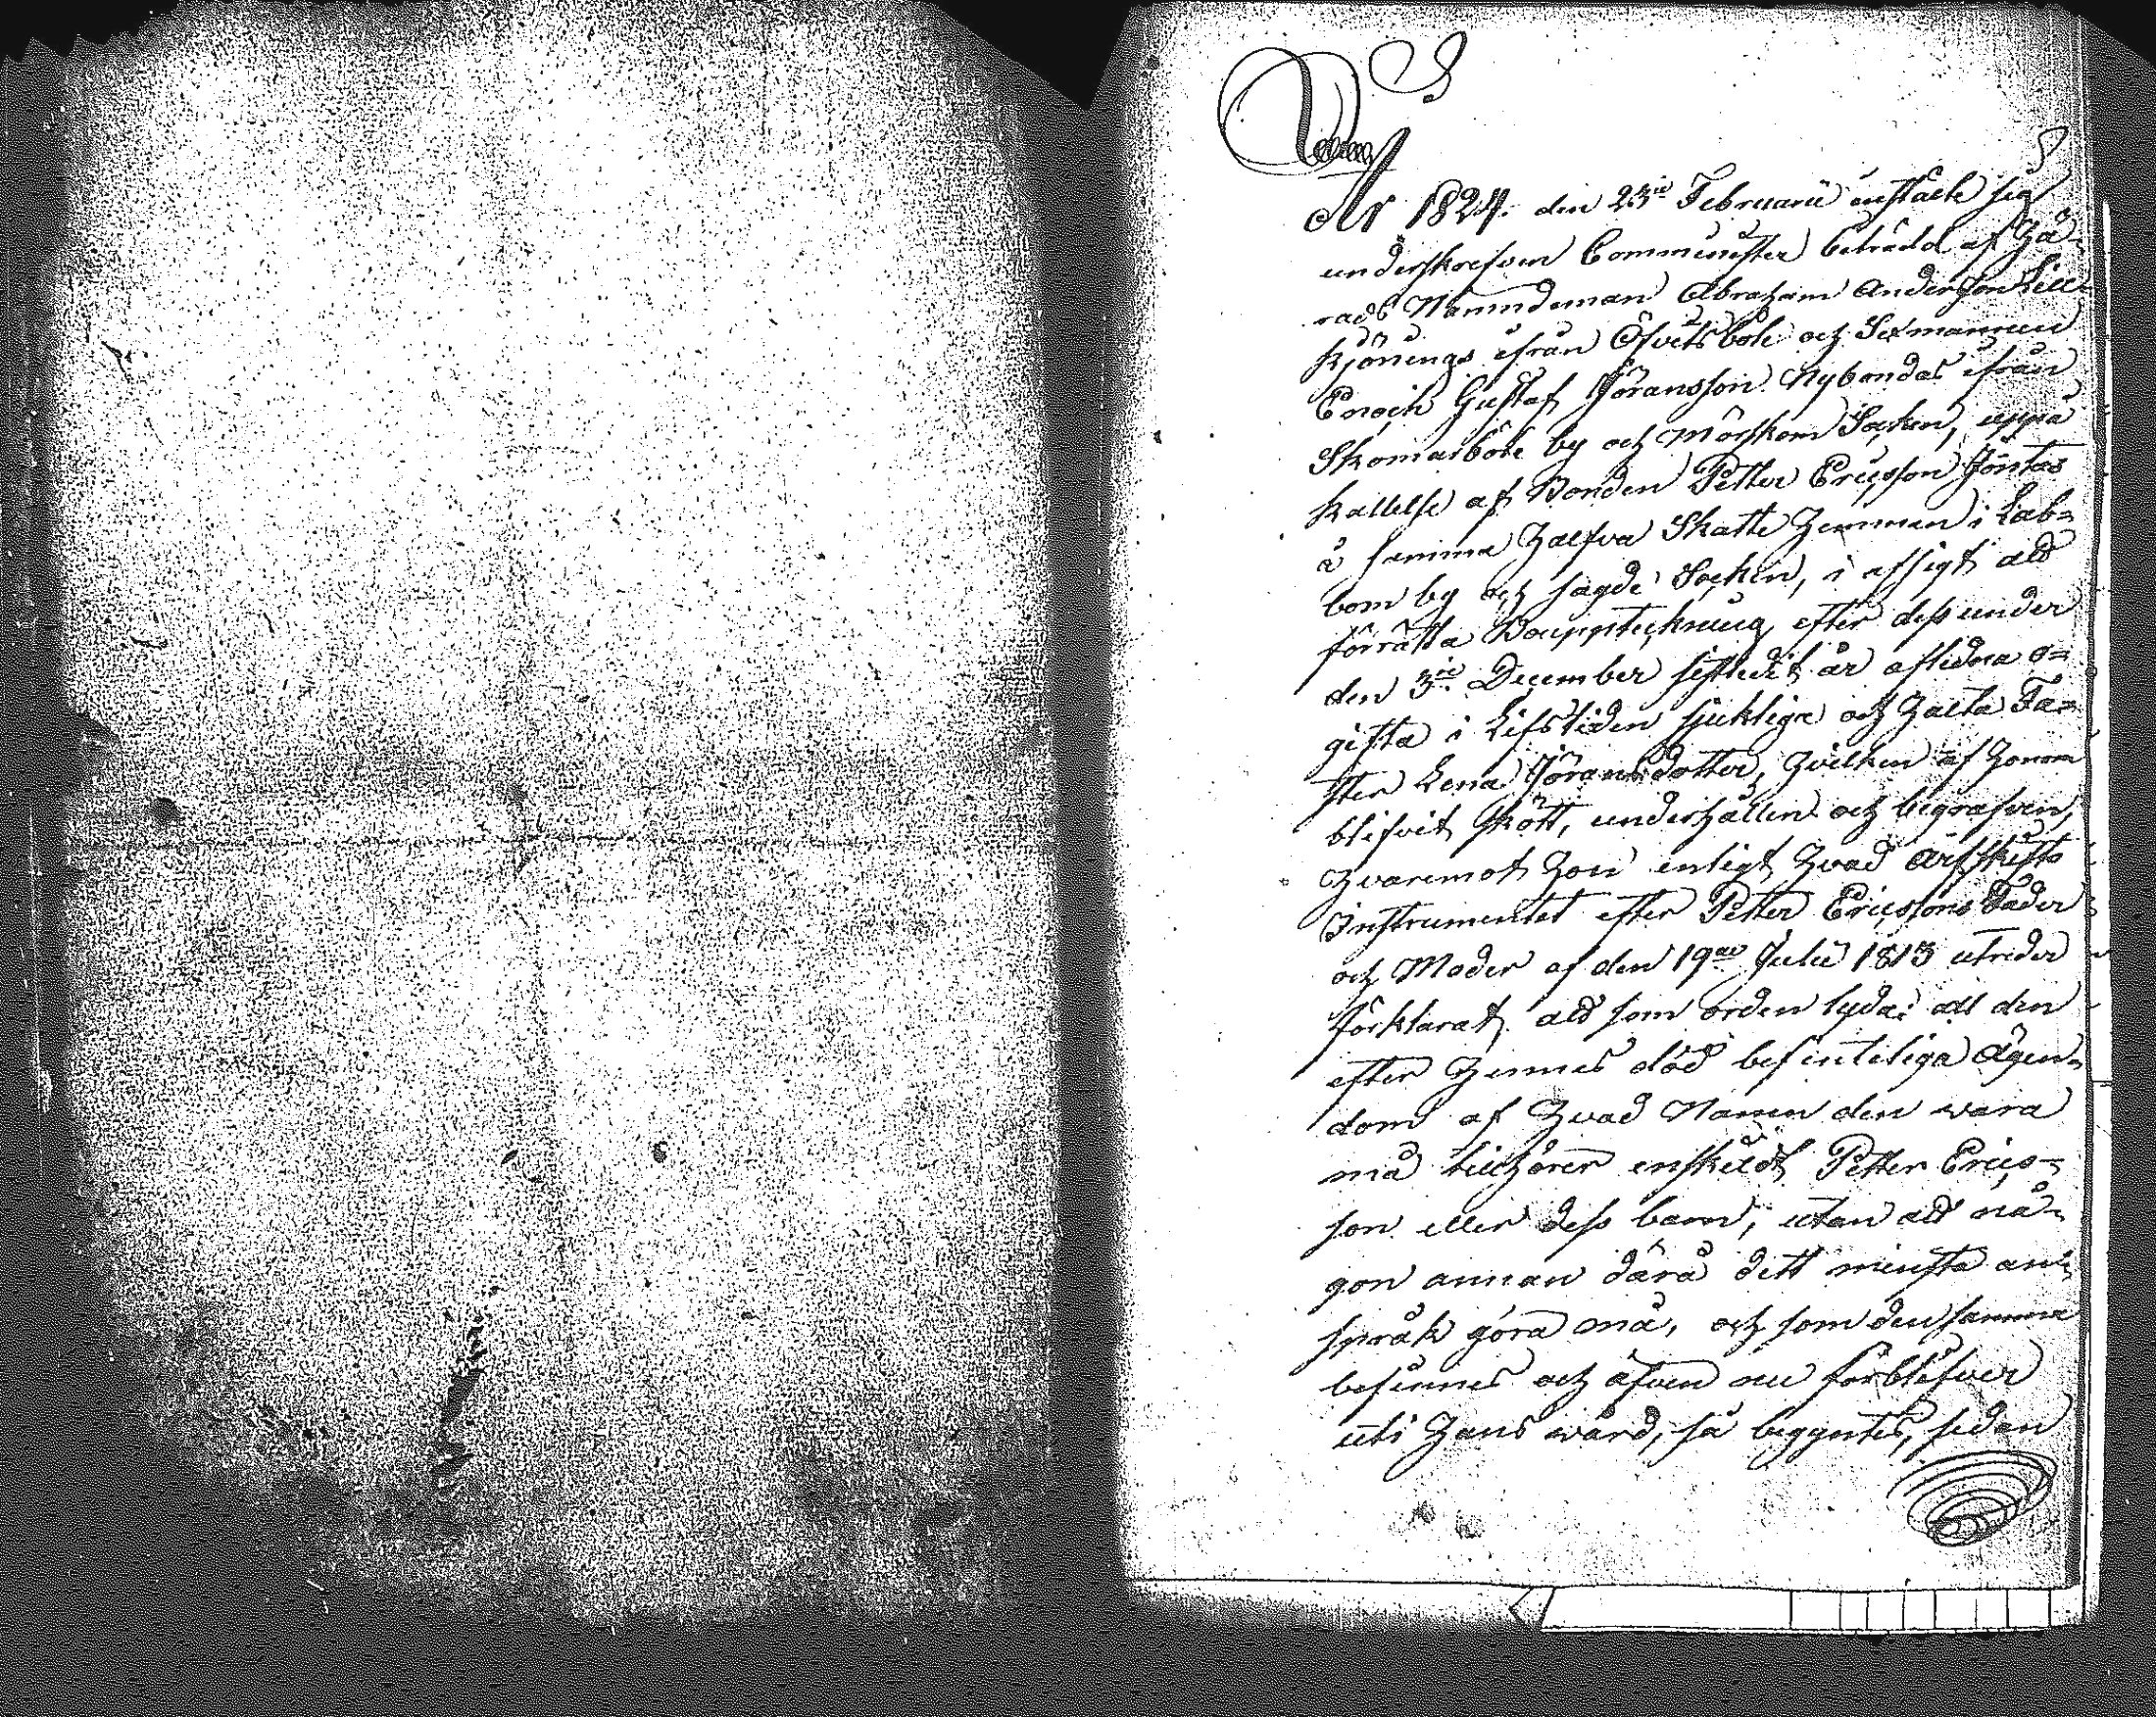 År 1824. den 23ie Februarii instälte sig
underskrefven Comminister biträdd af Hä-
rads Nämndeman Abraham Andersson Lill
kjönings ifrån Öfvitsböle och Sexmannen
Enoch Gustaf Jöransson Nybondas ifrån
Skomarböle by och Mörskom Socken, uppå
kallelse af Bonden Petter Ericsson Jöntas
å samma halfva Skatte hemman i Lab-
bom by och sagde Socken, i afsigt att
förrätta Boupptekning efter dess under
den 3ie December sistledit år aflidna o-
gifta i Lifstiden sjukliga och halta Fa-
ster Lena Jöransdotter, hvilken af honom
blifvit skött, underhållen och begrafven,
hvaremot hon enligt hvad Arfskifts
Instrumentet efter Petter Ericssons Fader
och Moder af den 19de Julii 1813 utreder
förklarat, att som orden lyda: all den
efter hennes död befinteliga Ägen-
dom af hvad Namn den vara
må tillhörer enskildt Petter Erics-
son eller dess barn, utan att nå-
gon annan därå dett minsta an-
språk göra må, och som densamma
befinnes och äfven nu förblifver
uti hans vård, så begyntes, sedan